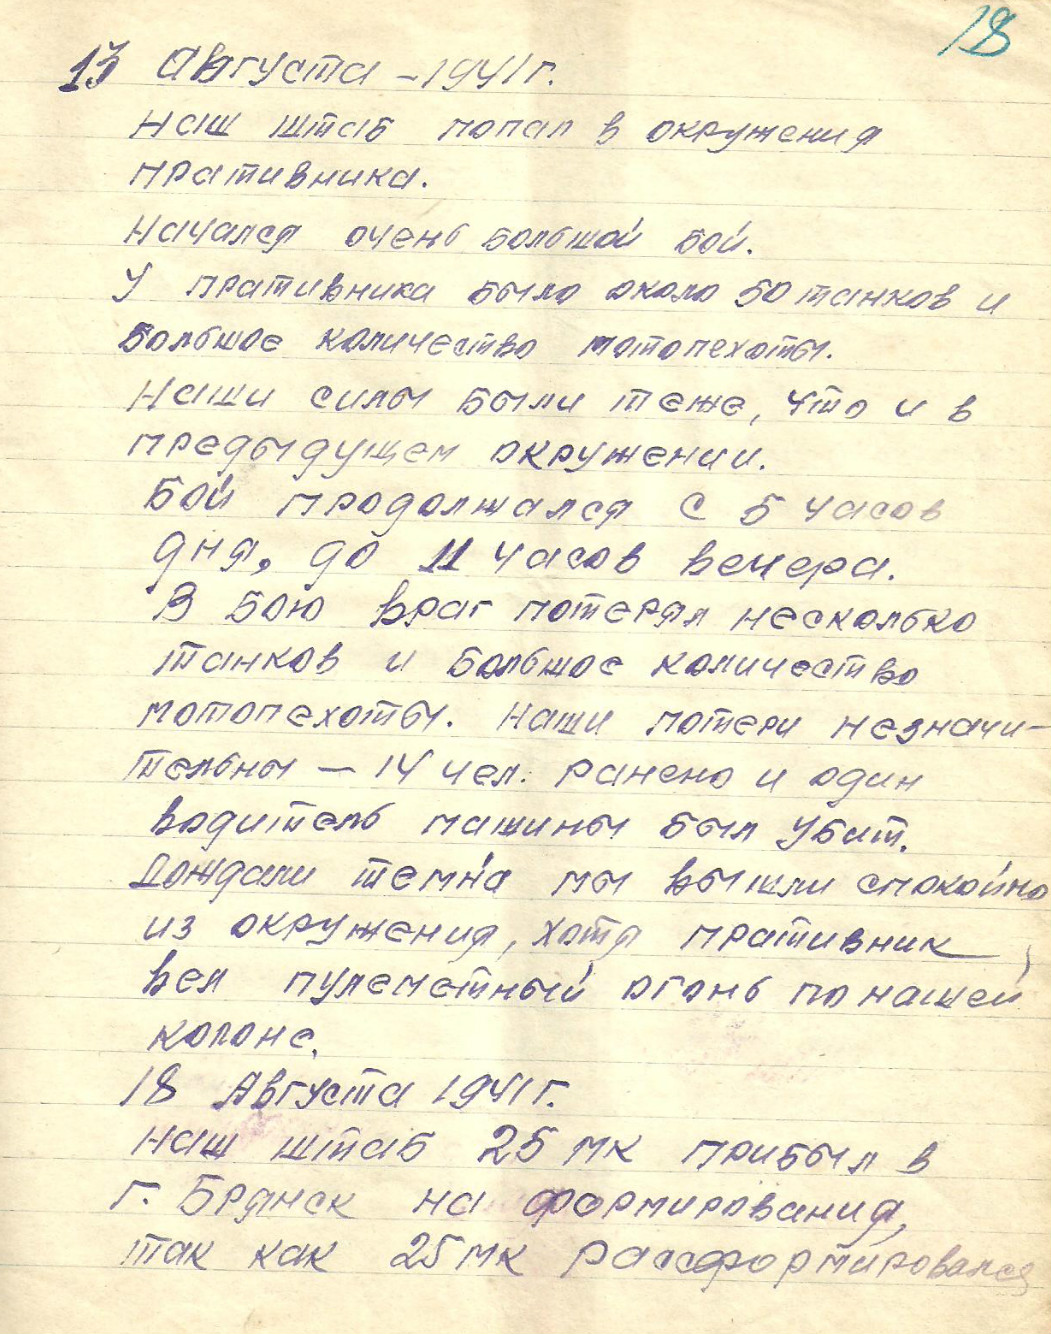 18
13 Августа – 1941 г.
Наш штаб попал в окружения
пративника.
Начался очень большой бой.
У пративника было около 50 танков и
большое количество мотопехоты.
Наши силы были теже, что и в
предыдущем окружении.
Бой продолжался с 5 часов
дня, до 11 часов вечера.
В бою враг потерял несколько
танков и большое количество
мотопехоты. Наши потери незначи-
тельны – 14 чел. ранено и один
водитель машины был убит.
Дождали темна мы вышли спокойно
из окружения, хотя пративник
вел пулеметный огонь по нашей
колоне.
18 Августа 1941 г.
Наш штаб 25 мк прибыл в
г. Брянск на формирования,
так как 25 мк рассформировался